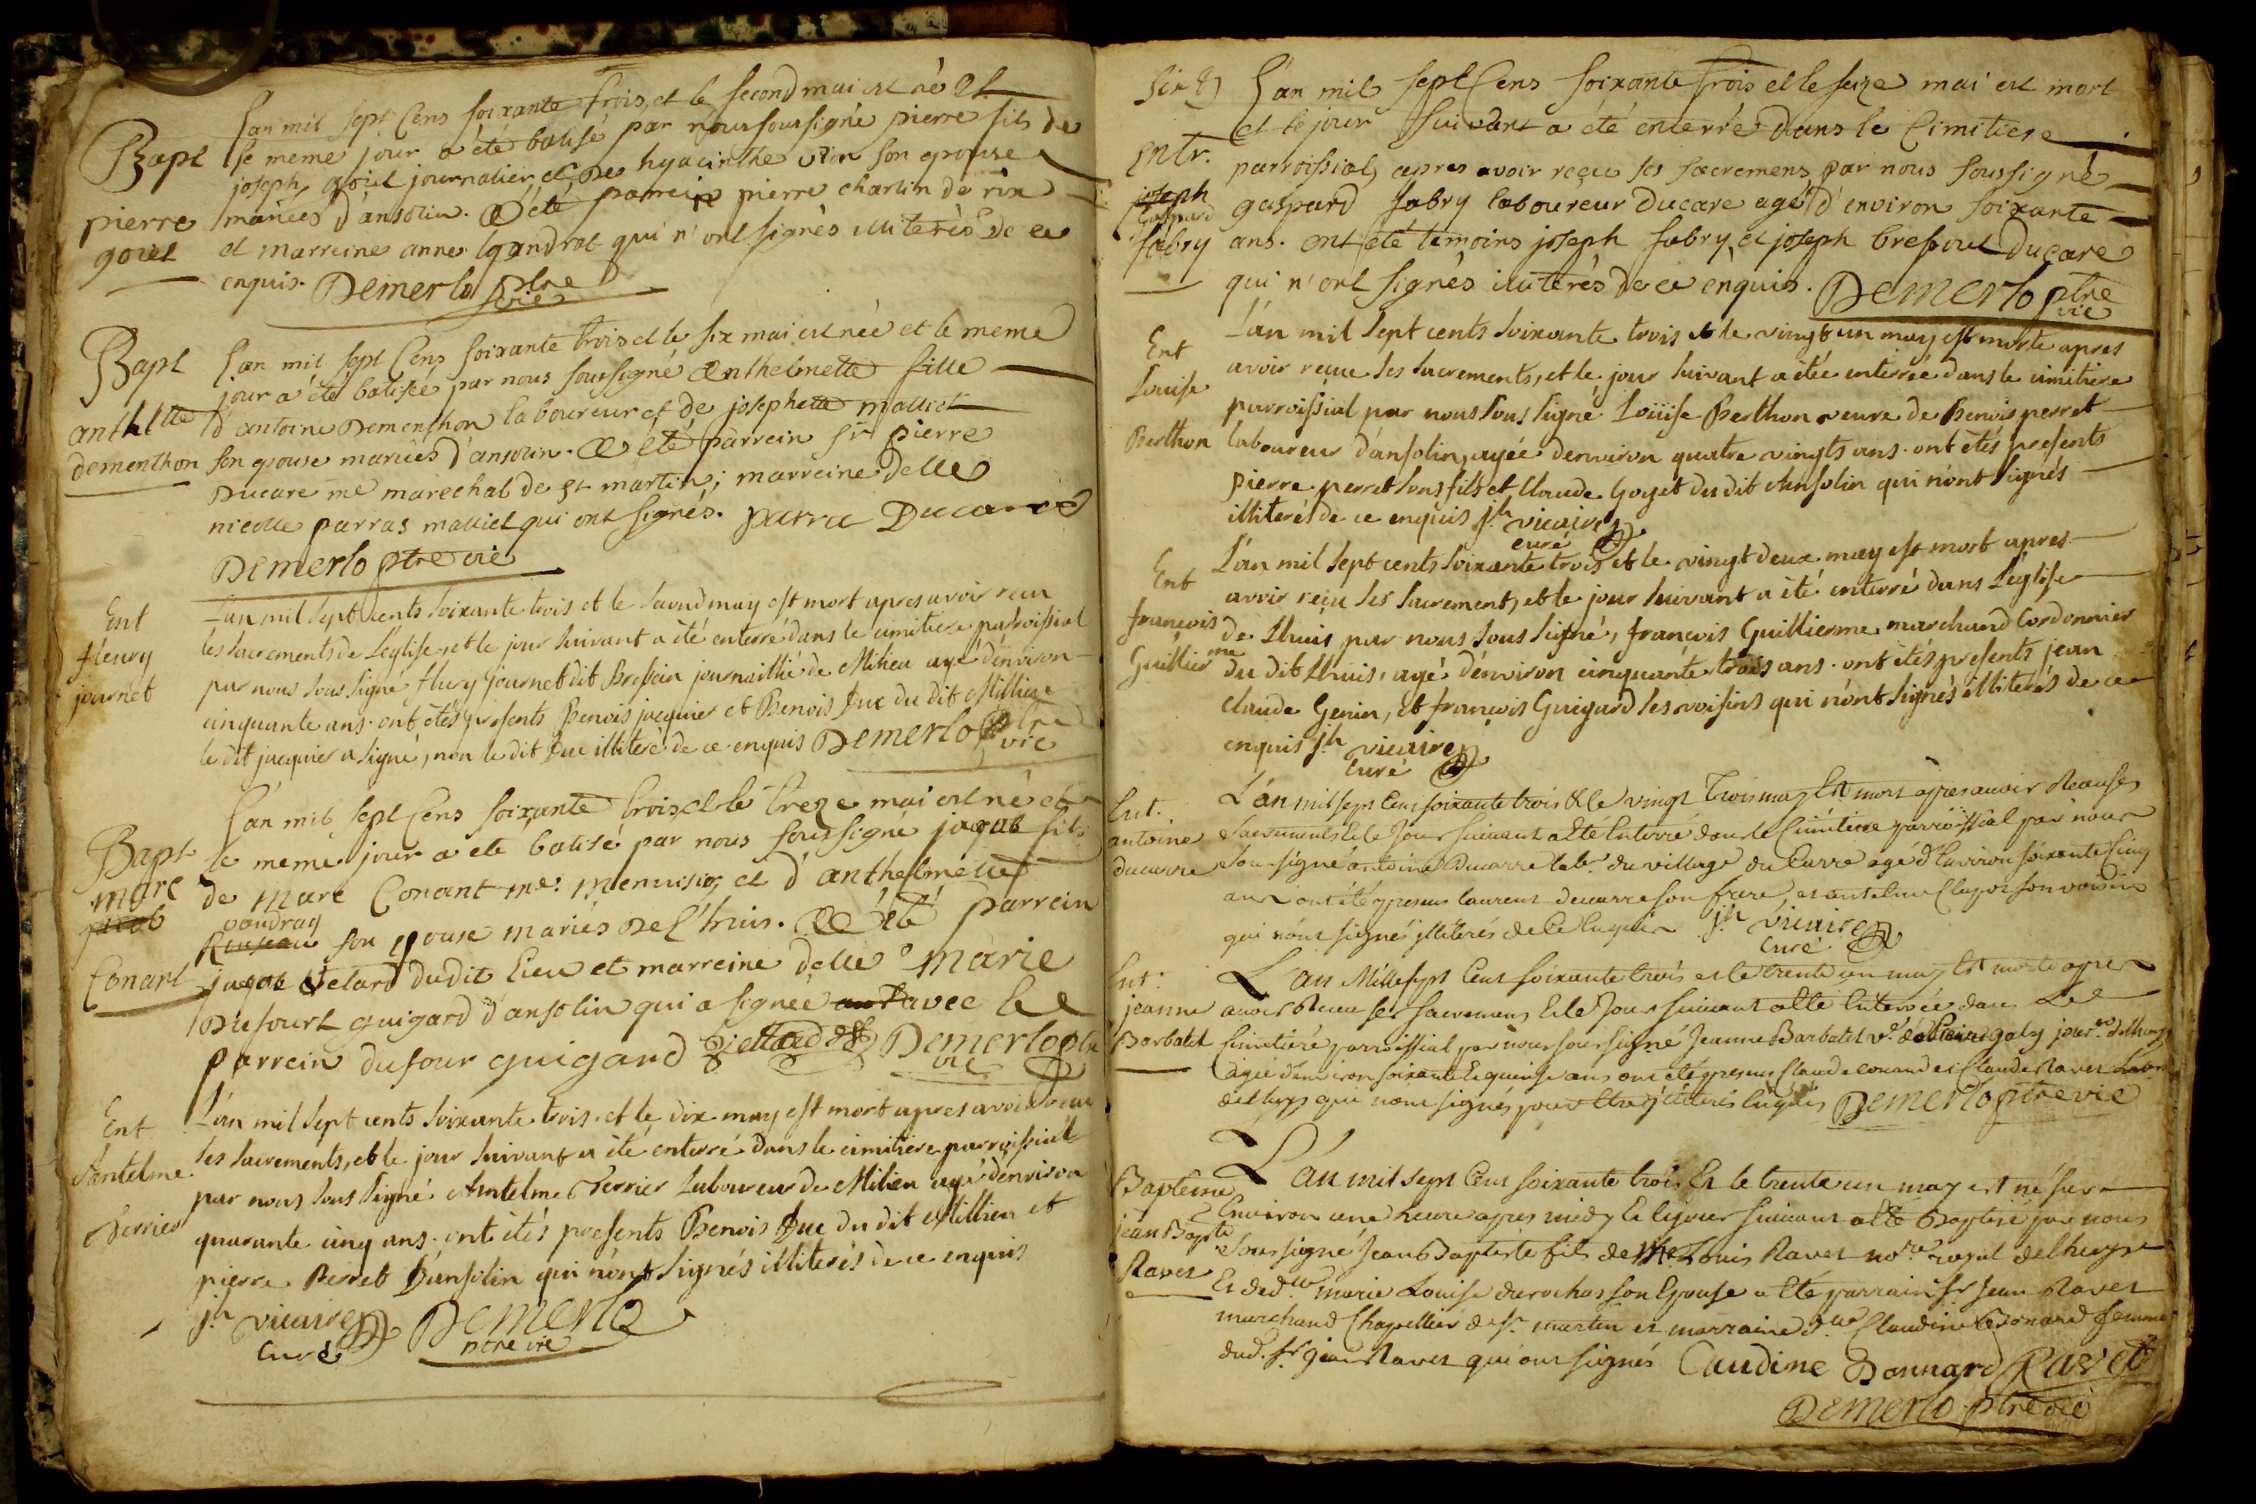 Bapt
pierre
goiet
L'an mil sept Cens soixante trois, et le second mai est né et
le meme jour a été batisé par nous soussigné pierre fils de
joseph goiet journalier et de hyacinthe son epouse
mariés d'ansolin. a été parrein pierre charlin de rix
et marreine anne gandrat qui n'ont signés illiterés de ce
enquis. Demerlo ptre
vic
Bapt
anthltte
dementhon
L'an mil sept Cens soixante trois et le six mai est née et le meme
jour a été batisée par nous soussigné Anthelmette fille
d'antoine Dementhon laboureur et de josephette malliet
son epouse mariés d'ansolin. a été parrein sr pierre
Ducare me marechal de st martin; marreine delle
nicolle parras malliet qui ont signés. parra Ducare
Demerlo ptre vic
Ent
fleury
journet
L'an mil sept cents soixante trois et le second may est mort apres avoir recu
les sacrements de L'eglise, et le jour suivant a été enterré dans le cimitiere parroissial
par nous sous signé flury journet dit Bressein journaillié de Milieu agé d'environ
cinquante ans. ont étés presents Benois jacquier et Benois Duc du dit Millieu
le dit jacquier a signé, non le dit Duc illiteré de ce enquis Demerlo ptre
vic
Bapt
marc
jacob
Conant
L'an mil sept Cens soixante trois et le treze mai est né et
le meme jour a été batisé par nous soussigné jaque fils
de Marc Conant me. menuisier, et d'anthelmette
vaudray
son epouse mariés de l'huis. a été parrein
jaque Jetard dudit lieu et marreine delle marie
Dufourt guigard d'ansolin qui a signée avec le
parrein dufour guigard Jettard Demerlo ptre
vic
Ent
Antelme
Perrier
L'an mil sept cents soixante trois. et le dix may est mort apres avoir recu
les sacrements, et le jour suivant a été enterré dans le cimitiere parroissial
par nous sous signé Antelme Perrier Laboureur de Milieu agé d'environ
quarante cinq ans. ont étés presents Benois Duc du dit Millieu et
pierre Perret D'ansolin qui n'ont signés illiterés de ce enquis
jh vicaire Demerlo
Curé ptre vic
Entr.
joseph
Gaspard
fabry
L'an mil sept Cens soixante trois et le seize mai est mort
et le jour suivant a été enterré dans le Cimitiere
parroissial, apres avoir reçue ses sacremens par nous soussigné
gaspard fabry laboureur Ducare agé d'environ soixante
ans. ont été temoins joseph fabry, et joseph bressout Ducare
qui n'ont signés illiterés de ce enquis. Demerlo ptre
vic
Ent
Louise
Berthon
L'an mil sept cents soixante trois et le vingt un may est morte apres
avoir reçue les sacrements, et le jour suivant a étée enterrée dans le cimitiere
parroissial par nous sous signé Loüise Berthon veuve de Benois perret
laboureur d'ansolin, agée d'environ quatre vingts ans. ont étés presents
pierre perret son fils et Claude Goyet du dit Ansolin qui n'ont signés
illiterés de ce enquis jh vicaire
curé
Ent
francois
Guillierme
L'an mil sept cents soixante trois et le vingt deux may est mort apres
avoir reçu les sacrement, et le jour suivant a été enterré dans L'église
de Lhuis par nous sous signé, francois Guillierme marchand Cordonnier
du dit Lhuis, agé d'environ cinquante trois ans. ont étés presents jean
claude Genin, et françois Guigard ses voisins qui n'ont signés illiterés de ce
enquis jh vicaire
Curé
Ent.
antoine
ducarre
L'an mil sept Cent soixante trois & le vingt trois may Est mort apres avoir Receu ses
sacrements & le Jour suivant a Eté Enterré dans le Cimitiere parroissial par nous
sous-signé antoine Ducarre labr. du village du Carre agé d'Environ soixante Cinq
ans ont été presens laurent ducarre son frere, et antelme Claypoz son voisin
qui n'ont signé illiterés de Ce Enquis jh vicaire
Curé
Ent:
jeanne
Barbatet
L'an Mille sept Cent soixante trois et le trente un may Est morte apres
avoir Receu ses sacremens & le Jour suivant a Eté Enterrée dans Le
Cimitiere parroissial par nous sous-signé Jeanne Barbatet ve. de galy jour. de lhuys
agée d'environ soixante & quinze ans ont été presens Claude conand et Claude Ravet
de Lhuys qui n'ont signés pour Etre illiterés Enquis Demerlo ptre vic
Bapteme
jean Bapte
Ravet
L'an mil sept Cent soixante trois Et le trente un may est né sur
Environ une heure apres midy & le jour suivant a Eté Baptisé par nous
soussigné Jean Baptiste fils de Me. Louis Ravet nore. royal de lhuys
Et de dlle marie Louise durochas son Epouse a Eté parrain sr Jean Ravet
marchand Chapellier de st martin et marraine dlle Claudine Bonnard femme
dud. sr jean Ravet qui ont signés Claudine Bonnard Ravet
Demerlo ptre vic